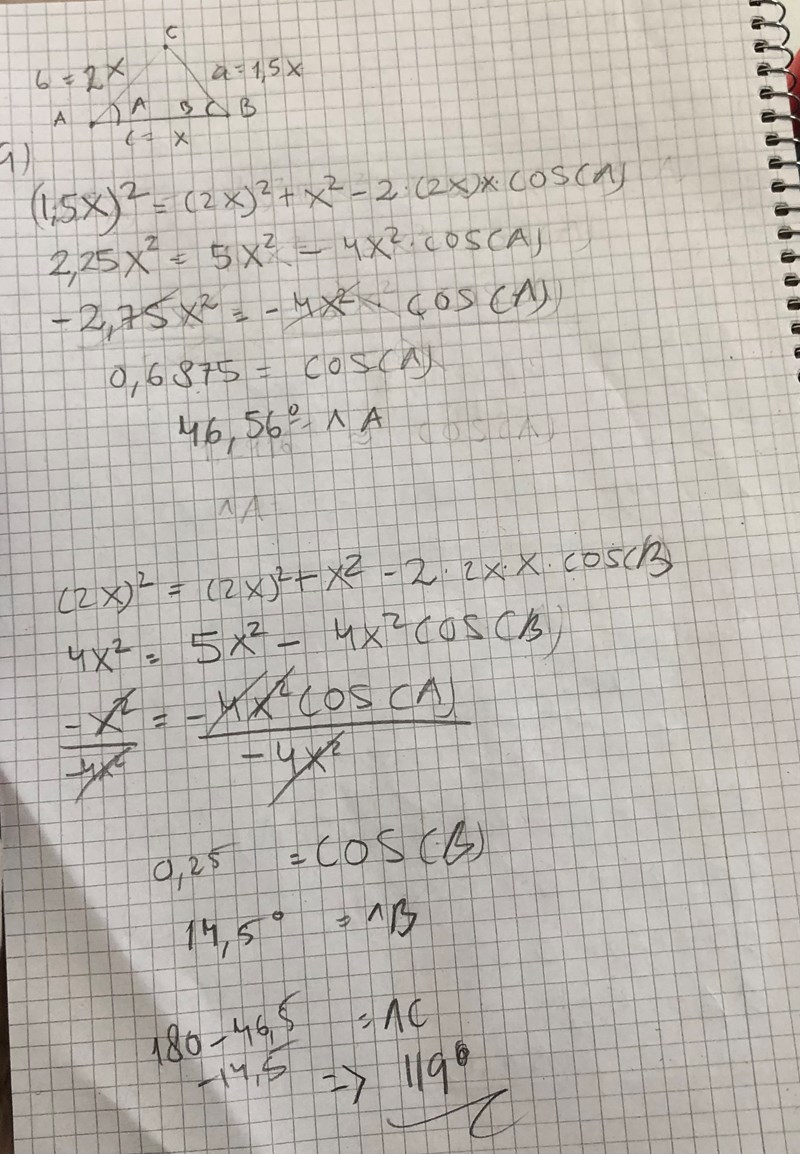 C
b = 2x
a = 1,5x
A A B B
c = x
(1,5x)² = (2x)² + x² - 2·(2x)x·cos(A)
2,25x² = 5x² - 4x²·cos(A)
-2,75x² = -4x² · cos(A)
0,6875 = cos(A)
46,56° = ^A
cos(A)
^A
(2x)² = (2x)² + x² - 2·2x·x·cos(B)
4x² = 5x² - 4x² cos(B)
-x² = -4x² cos(A)
-4x² -4x²
0,25 = cos(B)
14,5° = ^B
180 - 46,5 = ^C
-14,5 => 119°